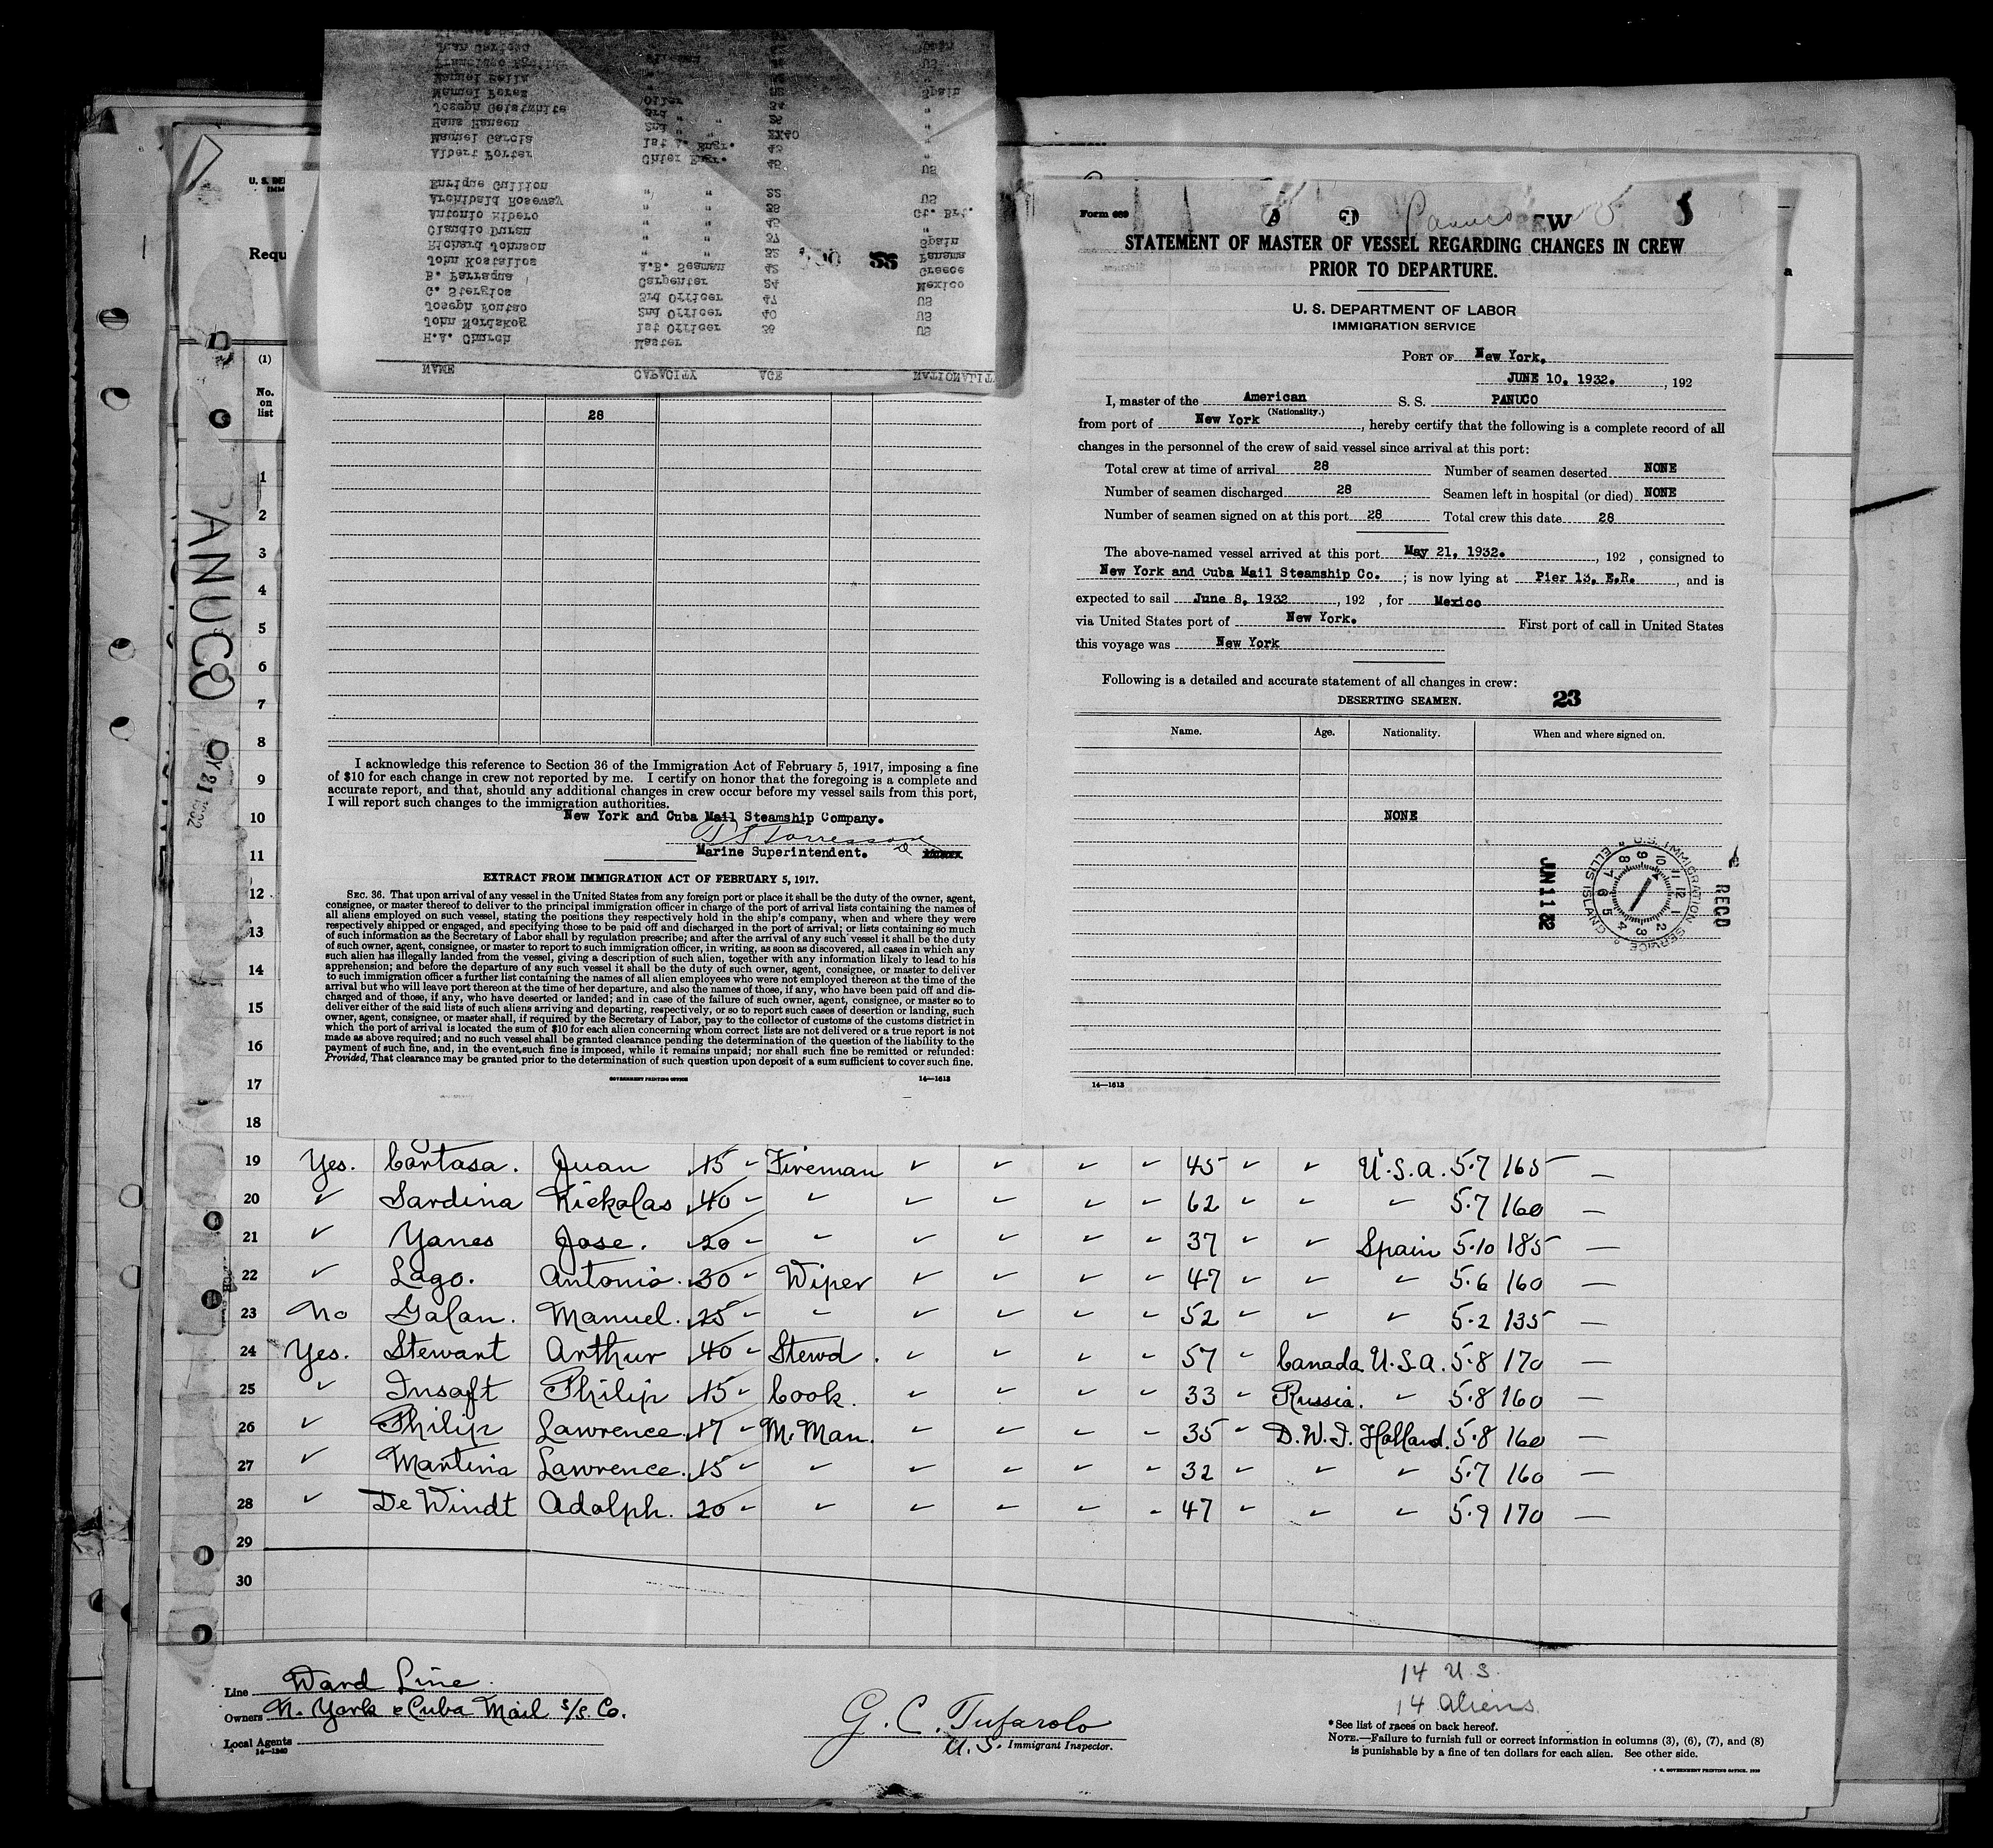 Juan Cortosa
Manuel Perez Oiler 32 Spain
Joseph Geistwhite 3rd " " 34 "
Hans Hansen 2nd " " 26 "
Manuel Garcia 1st A. Engr. XX40 "
Albert Porter Chief Engr. 45 US
Enrique Guillon " " 22
Archibald Roseway " " 38 US
Antonio Ribero " " 45 Gt. Brt.
Claudio Duran " " 37
Richard Johnson " " 32 Spain
John Kostallos A.B. Seaman 42 Panama
B. Parragua Carpenter 24 Greece
G. Stergios 3rd Officer 47 Mexico
Joseph Fontao 2nd Officer 40 US
John Nordskog 1st Officer 36 US
H.A. Church Master US
NAME CAPACITY AGE NATIONALIT
U. S. DE
IMM
Requ
(1)
No.
on
list
PANUCO
28
I acknowledge this reference to Section 36 of the Immigration Act of February 5, 1917, imposing a fine
of $10 for each change in crew not reported by me. I certify on honor that the foregoing is a complete and
accurate report, and that, should any additional changes in crew occur before my vessel sails from this port,
I will report such changes to the immigration authorities.
New York and Cuba Mail Steamship Company.
Marine Superintendent.
EXTRACT FROM IMMIGRATION ACT OF FEBRUARY 5, 1917.
SEC. 36. That upon arrival of any vessel in the United States from any foreign port or place it shall be the duty of the owner, agent,
consignee, or master thereof to deliver to the principal immigration officer in charge of the port of arrival lists containing the names of
all aliens employed on such vessel, stating the positions they respectively hold in the ship's company, when and where they were
respectively shipped or engaged, and specifying those to be paid off and discharged in the port of arrival; or lists containing so much
of such information as the Secretary of Labor shall by regulation prescribe; and after the arrival of any such vessel it shall be the duty
of such owner, agent, consignee, or master to report to such immigration officer, in writing, as soon as discovered, all cases in which any
such alien has illegally landed from the vessel, giving a description of such alien, together with any information likely to lead to his
apprehension; and before the departure of any such vessel it shall be the duty of such owner, agent, consignee, or master to deliver
to such immigration officer a further list containing the names of all alien employees who were not employed thereon at the time of the
arrival but who will leave port thereon at the time of her departure, and also the names of those, if any, who have been paid off and dis-
charged and of those, if any, who have deserted or landed; and in case of the failure of such owner, agent, consignee, or master so to
deliver either of the said lists of such aliens arriving and departing, respectively, or so to report such cases of desertion or landing, such
owner, agent, consignee, or master shall, if required by the Secretary of Labor, pay to the collector of customs of the customs district in
which the port of arrival is located the sum of $10 for each alien concerning whom correct lists are not delivered or a true report is not
made as above required; and no such vessel shall be granted clearance pending the determination of the question of the liability to the
payment of such fine, and, in the event such fine is imposed, while it remains unpaid; nor shall such fine be remitted or refunded:
Provided, That clearance may be granted prior to the determination of such question upon deposit of a sum sufficient to cover such fine.
GOVERNMENT PRINTING OFFICE 14—1613
Form 689
Panuco
STATEMENT OF MASTER OF VESSEL REGARDING CHANGES IN CREW
PRIOR TO DEPARTURE.
U. S. DEPARTMENT OF LABOR
IMMIGRATION SERVICE
PORT OF New York.
JUNE 10, 1932. , 192
I, master of the American S. S. PANUCO
(Nationality.)
from port of New York , hereby certify that the following is a complete record of all
changes in the personnel of the crew of said vessel since arrival at this port:
Total crew at time of arrival 28 Number of seamen deserted NONE
Number of seamen discharged 28 Seamen left in hospital (or died) NONE
Number of seamen signed on at this port 28 Total crew this date 28
The above-named vessel arrived at this port May 21, 1932. , 192 , consigned to
New York and Cuba Mail Steamship Co. ; is now lying at Pier 13, E.R. , and is
expected to sail June 8, 1932 , 192 , for Mexico
via United States port of New York. First port of call in United States
this voyage was New York
Following is a detailed and accurate statement of all changes in crew:
DESERTING SEAMEN. 23
Name. Age. Nationality. When and where signed on.
NONE
JUN 11 32
U.S. IMMIGRATION SERVICE ELLIS ISLAND
RECD
14—1613
1
2
3
4
5
6
7
8
9
10
11
12
13
14
15
16
17
18
19 Yes. Cortasa. Juan 15 Fireman 45 U.S.A. 5.7 165 —
20 ✓ Sardina Nickolas 40 " 62 " 5.7 160 —
21 ✓ Yanes Jose. 20 " 37 Spain 5.10 185 —
22 ✓ Lago. Antonio. 30 Wiper 47 " 5.6 160 —
23 No Galan. Manuel. 25 " 52 " 5.2 135 —
24 Yes. Stewart Arthur 40 Stewd. 57 Canada U.S.A. 5.8 170 —
25 ✓ Insaft Philip 15 Cook. 33 Russia. " 5.8 160 —
26 ✓ Philip Lawrence. 17 M. Man. 35 D.W.I. Holland. 5.8 160 —
27 ✓ Martina Lawrence. 15 " 32 " " 5.7 160 —
28 ✓ De Windt Adolph. 20 " 47 " " 5.9 170 —
29
30
Line Ward Line.
Owners N. York & Cuba Mail S/S. Co.
Local Agents
14—1240
G. C. Tufarolo
U. S. Immigrant Inspector.
14 U.S.
14 Aliens.
* See list of races on back hereof.
NOTE.—Failure to furnish full or correct information in columns (3), (6), (7), and (8)
is punishable by a fine of ten dollars for each alien. See other side.